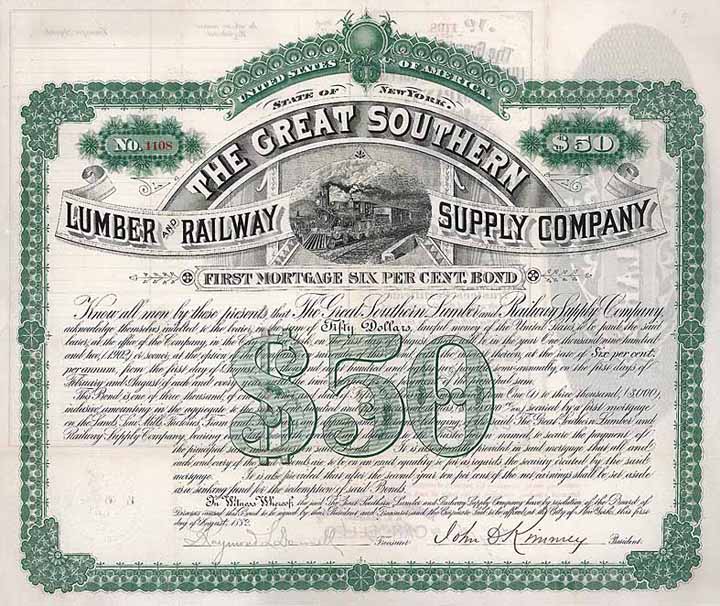 UNITED STATES OF AMERICA
STATE OF NEW YORK.
No. 1108
$50
THE GREAT SOUTHERN
LUMBER AND RAILWAY SUPPLY COMPANY
FIRST MORTGAGE SIX PER CENT. BOND
Know all men by these presents, that The Great Southern Lumber and Railway Supply Company,
acknowledge themselves indebted to the bearer, in the sum of Fifty Dollars, lawful money of the United States, to be paid the said
bearer, at the office of the Company, in the in the year One thousand nine hundred
and two, (1902) or sooner, at the option thereon, at the rate of Six per cent.
per annum, from the first day of August semi-annually, on the first days of
February and August of each and every sum.
This Bond is one of three thousand, of One (1) to three thousand, (3,000),
inclusive, amounting in the aggregate to secured by a first mortgage
on the Lands, Saw Mills, said The Great Southern Lumber and
Railway Supply Company, bearing named, to secure the payment of
the principal provided in said mortgage that all and
each and every of the Bonds are to be on an equality so far as regards the security created by the said
mortgage. It is also provided that after the second year ten per cent of the net earnings shall be set aside
as a sinking fund for the redemption of said Bonds.
In Witness Whereof, the said The Great Southern Lumber and Railway Supply Company have by resolution of the Board of
Directors caused this Bond to be signed by their President and Treasurer and the Corporate Seal to be affixed, at the City of New York, this first
day of August, 1882.
Treasurer. John D Kimmey President.
$50